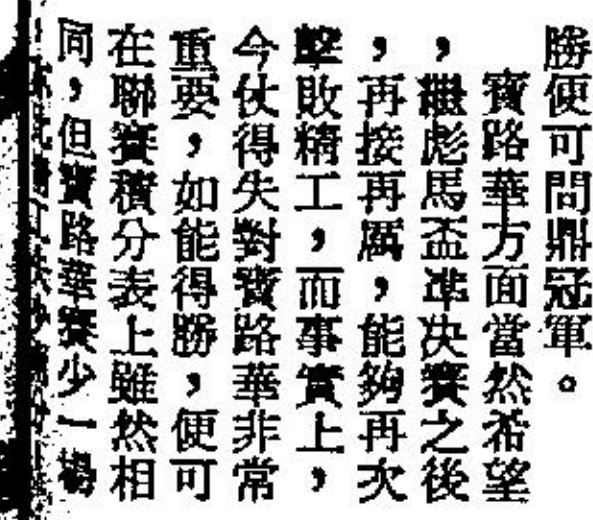 勝便可問鼎冠軍。
寶路華方面當然希望
，繼彪馬盃準决賽之後
，再接再厲，能夠再次
擊敗精工，而事實上，
今仗得失對寶路華非常
重要，如能得勝，便可
在聯賽積分表上雖然相
同，但寶路華賽少一場